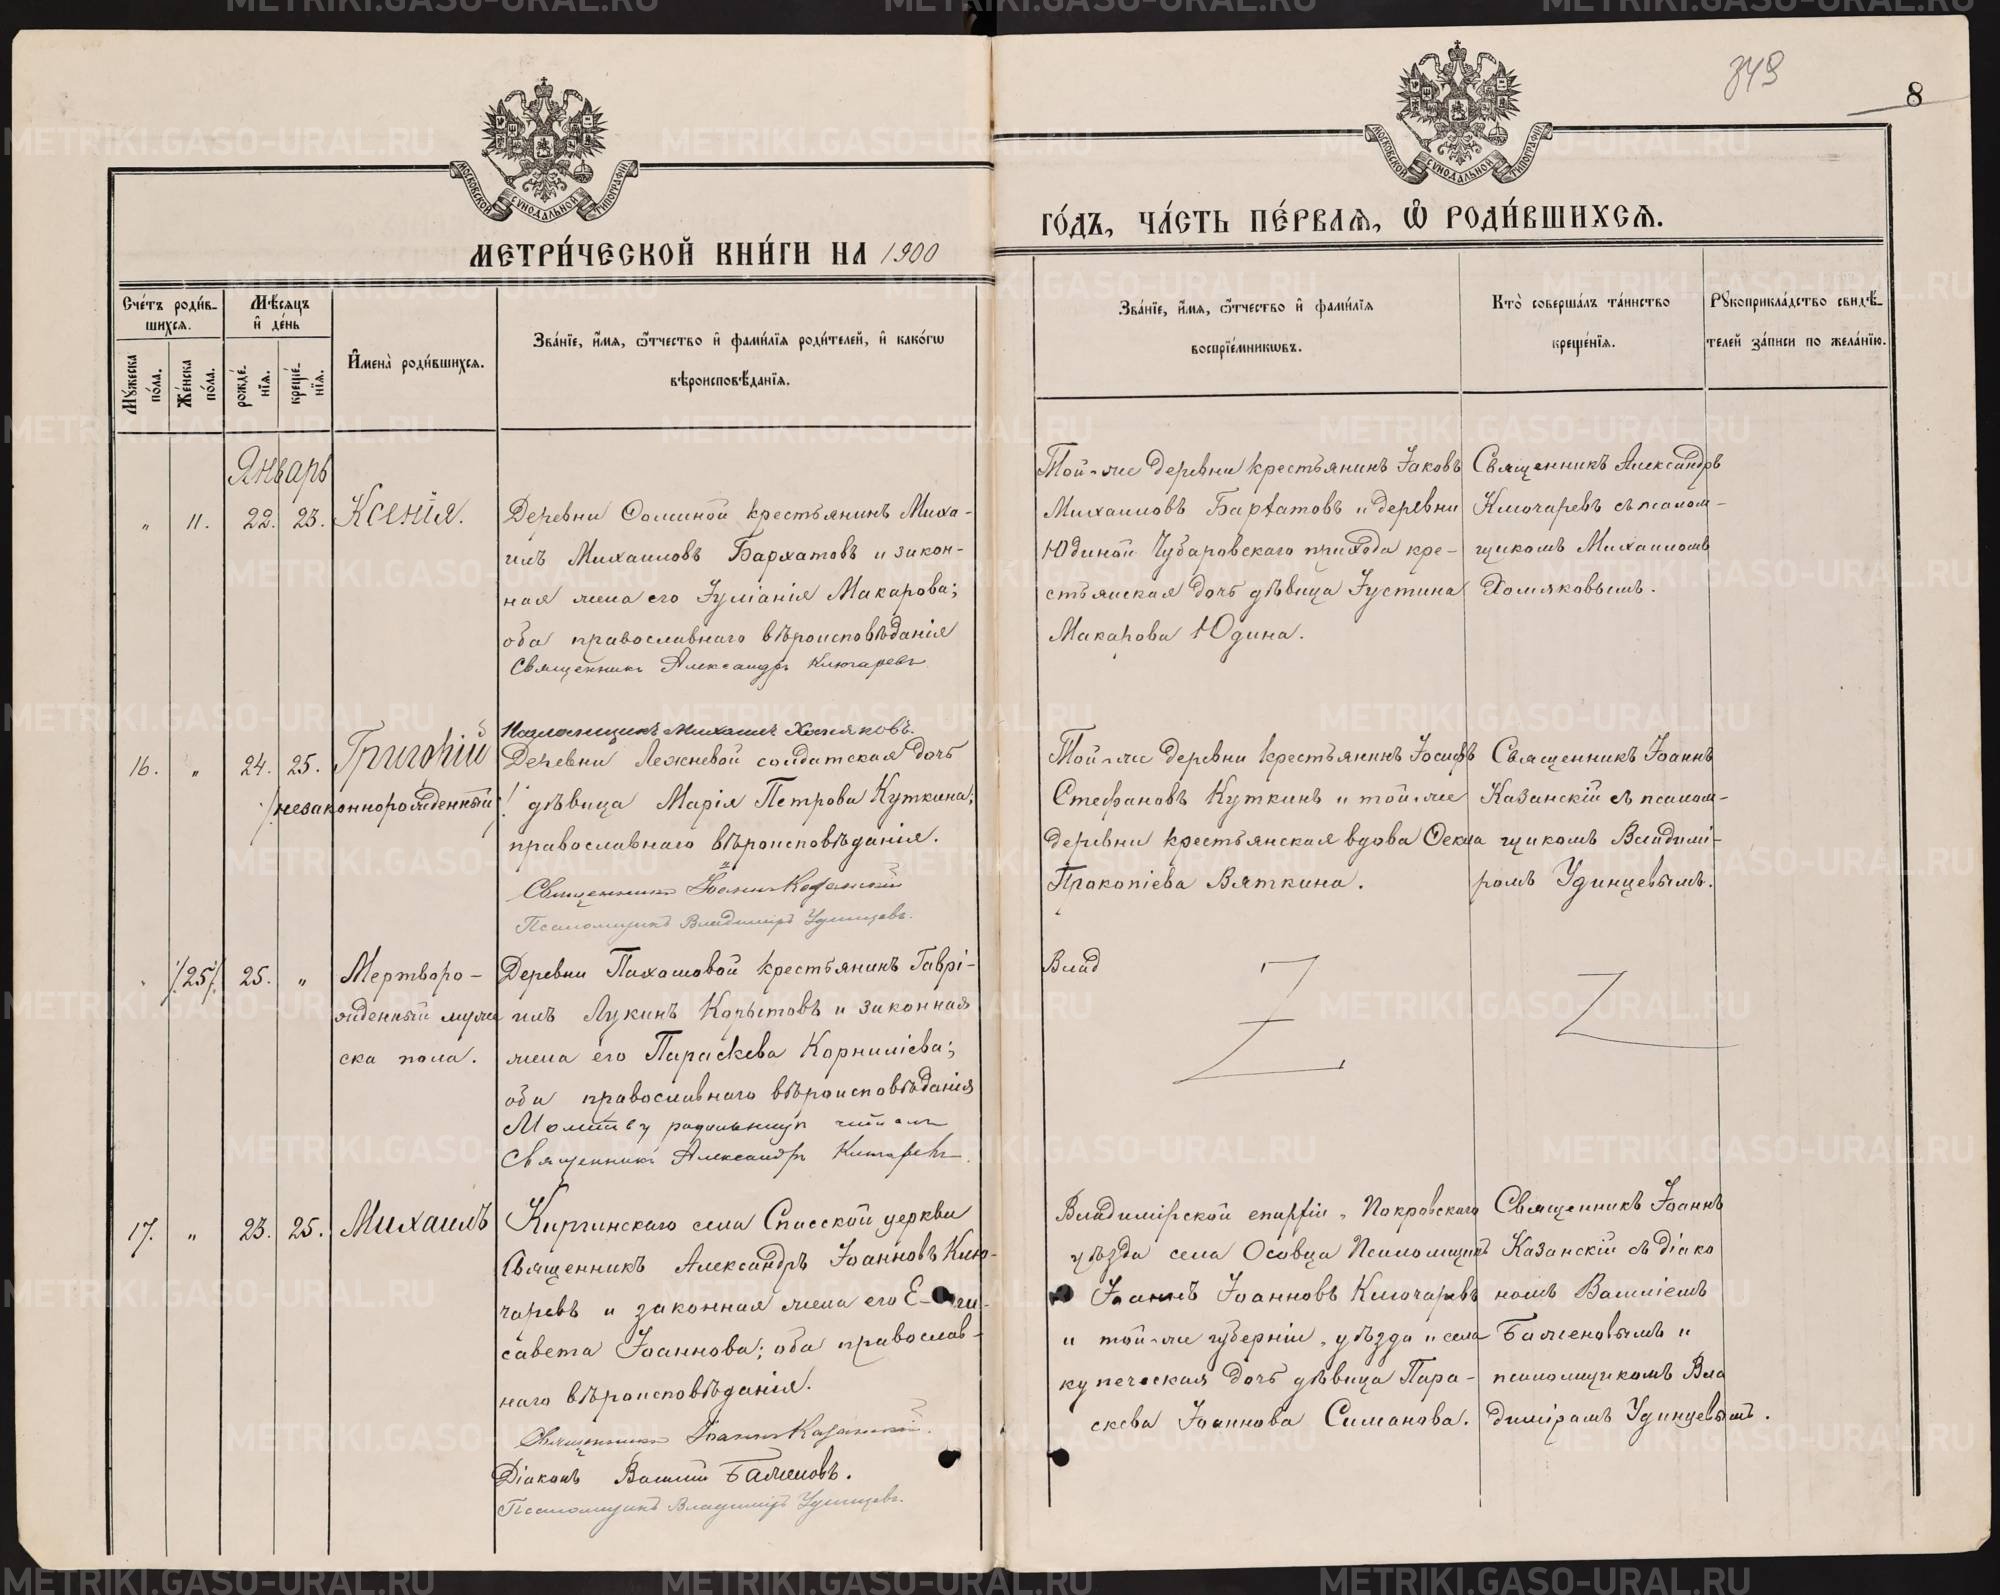 849
8
МОСКОВСКОЙ СѴНОДАЛЬНОЙ ТИПОГРАФІИ
МОСКОВСКОЙ СѴНОДАЛЬНОЙ ТИПОГРАФІИ
МЕТРИ́ЧЕСКОЙ КНИ́ГИ НА 1900
ГО́ДЪ, ЧА́СТЬ ПЕ́РВАѦ, Ѡ҆ РОДИ́ВШИХСѦ.
Сче́тъ роди́в-
шихсѧ.
Мѣ́сѧцъ
и҆ де́нь
Мꙋ́жеска
по́ла.
Же́нска
по́ла.
рожде́-
нїѧ.
креще́-
нїѧ.
И҆мена̀ роди́вшихсѧ.
Зва́нїе, и҆́мѧ, ѻ҆́тчество и҆ фами́лїѧ роди́телей, и҆ како́гѡ
вѣроисповѣ́данїѧ.
Зва́нїе, и҆́мѧ, ѻ҆́тчество и҆ фами́лїѧ
воспрїе́мникѡвъ.
Кто̀ соверша́лъ та́инство
креще́нїѧ.
Рꙋкоприкла́дство свидѣ́-
телей за́писи по жела́нїю.
Январь
„ 11. 22. 23. Ксенія.
Деревни Соминой крестьянинъ Миха-
илъ Михаиловъ Бархатовъ и закон-
ная жена его Іуліанія Макарова;
оба православнаго вѣроисповѣданія
Священникъ Александръ Ключаревъ
Псаломщикъ Михаилъ Хомяковъ.
Той-же деревни крестьянинъ Іаковъ
Михаиловъ Бархатовъ и деревни
Юдиной Чубаровскаго прихода кре-
стьянская дочь дѣвица Іустина
Макарова Юдина.
Священникъ Александръ
Ключаревъ съ псалом-
щикомъ Михаиломъ
Хомяковымъ.
16. „ 24. 25. Григорій
/незаконнорожденный/
Деревни Лежневой солдатская дочь
дѣвица Марія Петрова Куткина,
православнаго вѣроисповѣданія.
Священникъ Іоаннъ Казанскій
Псаломщикъ Владиміръ Удинцевъ.
Той-же деревни крестьянинъ Іосифъ
Стефановъ Куткинъ и той-же
деревни крестьянская вдова Ѳекла
Прокопіева Вяткина.
Священникъ Іоаннъ
Казанскій съ псалом-
щикомъ Владимі-
ромъ Удинцевымъ.
„ /25/. 25. „ Мертворо-
жденный муже
ска пола.
Деревни Пахомовой крестьянинъ Гаврі-
илъ Лукинъ Корытовъ и законная
жена его Параскева Корниліева;
оба православнаго вѣроисповѣданія
Молитву родильницѣ читалъ
Священникъ Александръ Ключаревъ.
Влад
Z
Z
17. „ 23. 25. Михаилъ
Киргинскаго села Спасской церкви
Священникъ Александръ Іоанновъ Клю-
чаревъ и законная жена его Е-ли-
савета Іоаннова; оба православ-
наго вѣроисповѣданія.
Священникъ Іоаннъ Казанскій.
Діаконъ Василій Баженовъ.
Псаломщикъ Владиміръ Удинцевъ.
Владимірской епархіи, Покровскаго
уѣзда села Осовца Псаломщикъ
Іоаннъ Іоанновъ Ключаревъ
и той-же губерніи, уѣзда и села
купеческая дочь дѣвица Пара-
скева Іоаннова Симанова.
Священникъ Іоаннъ
Казанскій съ діако
номъ Василіемъ
Баженовымъ и
псаломщикомъ Вла
диміромъ Удинцевымъ.
METRIKI.GASO-URAL.RU